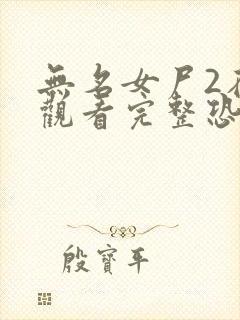 無名女尸2在
觀看完整恐
殷寶平